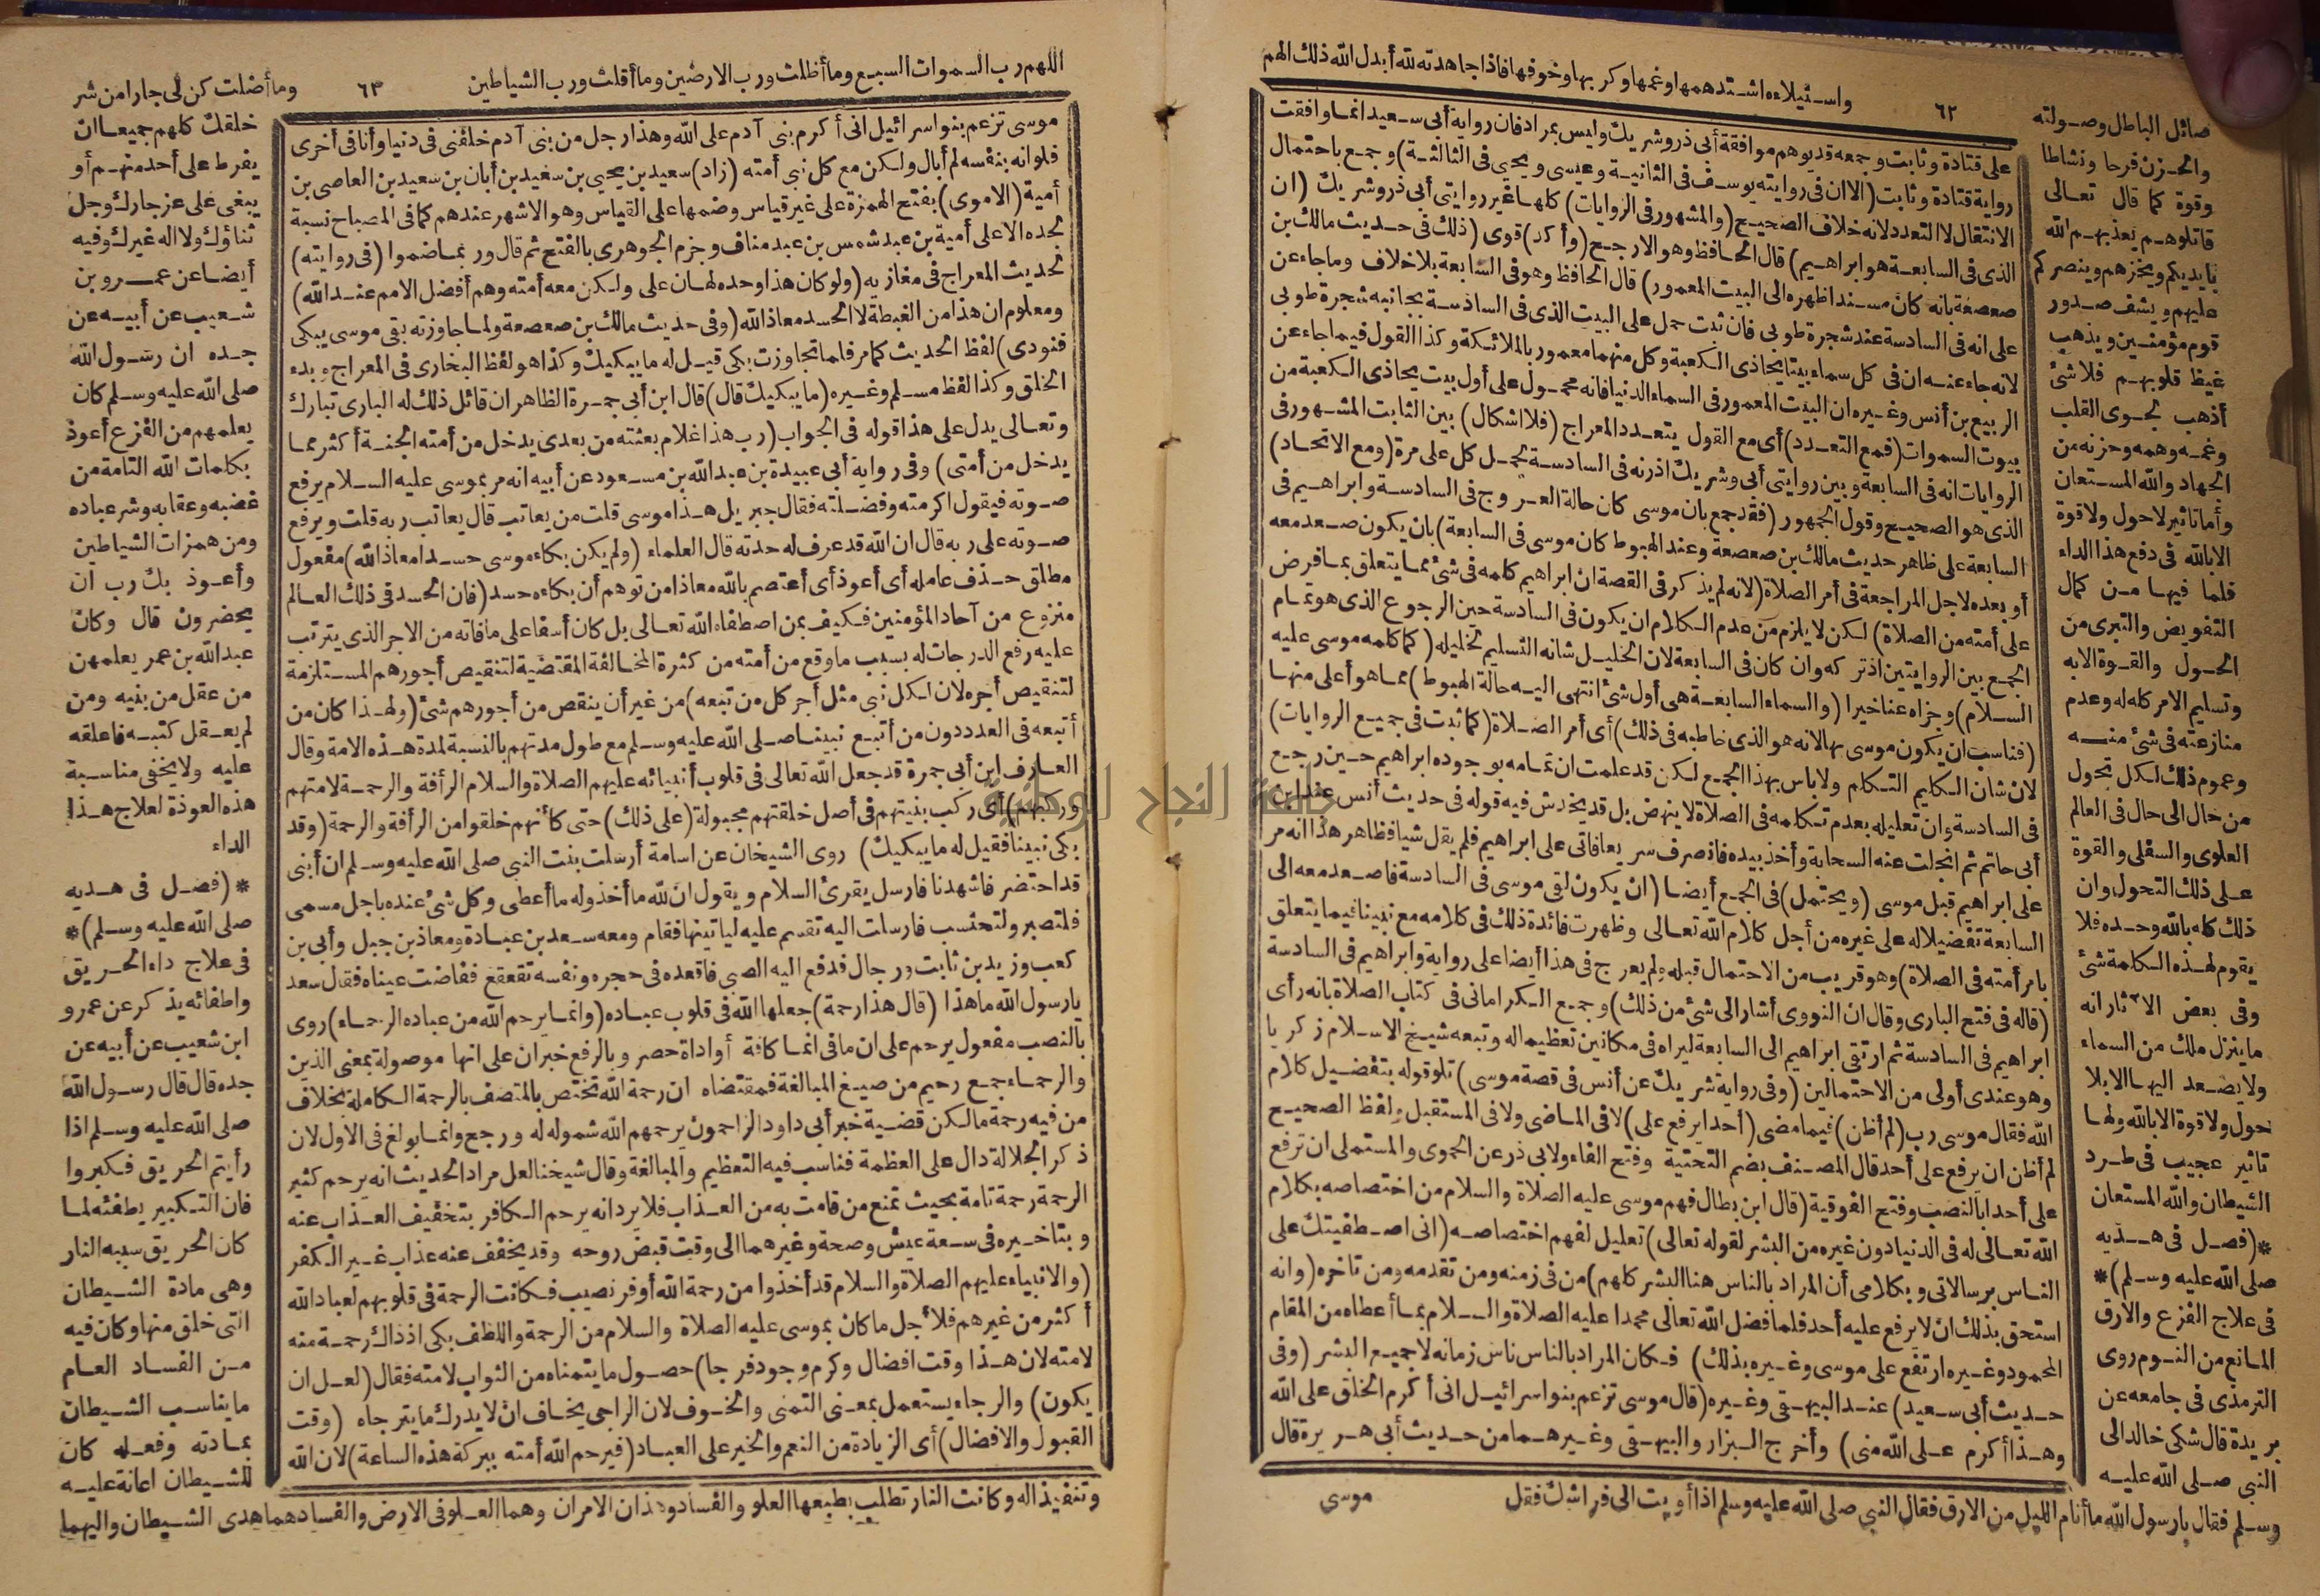 واستيلاءه اشتد همها وغمها وكربها وخوفها فاذا جاهدته لله أبدل الله ذلك الهم
٦٢
صائل الباطل وصولته
والحزن فرحا ونشاطا
وقوة كما قال تعالى
قاتلوهم يعذبهم الله
بايديكم ويخزهم وينصركم
عليهم ويشف صدور
قوم مؤمنين ويذهب
غيظ قلوبهم فلا شئ
أذهب لجوى القلب
وغمه وهمه وحزنه من
الجهاد والله المستعان
وأما تاثير لا حول ولا قوة
الا بالله فى دفع هذا الداء
فلما فيها من كمال
التفويض والتبرى من
الحول والقوة الا به
وتسليم الامر كله له وعدم
منازعته فى شئ منه
وعموم ذلك لكل تحول
من حال الى حال فى العالم
العلوى والسفلى والقوة
على ذلك التحول وان
ذلك كله بالله وحده فلا
يقوم لهذه الكلمة شئ
وفى بعض الآثار انه
ما ينزل ملك من السماء
ولا يصعد اليها الا بلا
حول ولا قوة الا بالله ولها
تاثير عجيب فى طرد
الشيطان والله المستعان
*(فصل فى هديه
صلى الله عليه وسلم)*
فى علاج الفزع والارق
المانع من النوم روى
الترمذى فى جامعه عن
بريدة قال شكى خالد الى
النبى صلى الله عليه
على قتادة وثابت وجمعه قد يوهم موافقة أبى ذر وشريك وليس بمراد فان رواية أبى سعيد انما وافقت
رواية قتادة وثابت (الا ان فى روايته يوسف فى الثانية وعيسى ويحيى فى الثالثة) وجمع باحتمال
الانتقال لا التعدد لانه خلاف الصحيح (والمشهور فى الروايات) كلها غير روايتى أبى ذر وشريك (ان
الذى فى السابعة هو ابراهيم) قال الحافظ وهو الارجح (وأكد) قوى (ذلك فى حديث مالك بن
صعصعة بانه كان مسندا ظهره الى البيت المعمور) قال الحافظ وهو فى السابعة بلا خلاف وما جاء عن
على انه فى السادسة عند شجرة طوبى فان ثبت حمل على البيت الذى فى السادسة بجانبه شجرة طوبى
لانه جاء عنه ان فى كل سماء بيتا يحاذى الكعبة وكل منهما معمور بالملائكة وكذا القول فيما جاء عن
الربيع بن أنس وغيره ان البيت المعمور فى السماء الدنيا فانه محمول على أول بيت يحاذى الكعبة من
بيوت السموات (فمع التعدد) أى مع القول بتعدد المعراج (فلا اشكال) بين الثابت المشهور فى
الروايات انه فى السابعة وبين روايتى أبى وشريك اذرنه فى السادسة لحمل كل على مرة (ومع الاتحاد)
الذى هو الصحيح وقول الجمهور (فقد جمع بان موسى كان حالة العروج فى السادسة وابراهيم فى
السابعة على ظاهر حديث مالك بن صعصعة وعند الهبوط كان موسى فى السابعة) بان يكون صعد معه
أو بعده لاجل المراجعة فى أمر الصلاة (لانه لم يذكر فى القصة ان ابراهيم كلمه فى شئ مما يتعلق بما فرض
على أمته من الصلاة) لكن لا يلزم من عدم الكلام ان يكون فى السادسة حين الرجوع الذى هو تمام
الجمع بين الروايتين اذ تركه وان كان فى السابعة لان الخليل شانه التسليم لخليله (كما كلمه موسى عليه
السلام) وجزاه عنا خيرا (والسماء السابعة هى أول شئ انتهى اليه حالة الهبوط) مما هو أعلى منها
(فناسب ان يكون موسى بها لانه هو الذى خاطبه فى ذلك) أى أمر الصلاة (كما ثبت فى جميع الروايات)
لان شان الكليم التكلم ولا باس بهذا الجمع لكن قد علمت ان تمامه بوجوده ابراهيم حين رجع
فى السادسة وان تعليله بعدم تكلمه فى الصلاة لا ينهض بل قد يخدش فيه قوله فى حديث أنس عند ابن
أبى حاتم ثم انجلت عنه السحابة وأخذ بيده فانصرف سريعا فاتى على ابراهيم فلم يقل شيا فظاهر هذا انه مر
على ابراهيم قبل موسى (ويحتمل) فى الجمع أيضا (ان يكون لقى موسى فى السادسة فاصعد معه الى
السابعة تفضيلا له على غيره من أجل كلام الله تعالى وظهرت فائدة ذلك فى كلامه مع نبينا فيما يتعلق
بامر أمته فى الصلاة) وهو قريب من الاحتمال قبله ولم يعرج فى هذا أيضا على رواية وابراهيم فى السادسة
(قاله فى فتح البارى وقال ان النووى أشار الى شئ من ذلك) وجمع الكرمانى فى كتاب الصلاة بانه رأى
ابراهيم فى السادسة ثم ارتقى ابراهيم الى السابعة ليراه فى مكانين تعظيما له وتبعه شيخ الاسلام زكريا
وهو عندى أولى من الاحتمالين (وفى رواية شريك عن أنس فى قصة موسى) تلو قوله بتفضيل كلام
الله فقال موسى رب (لم أظن) فيما مضى (أحدا يرفع على) لا فى الماضى ولا فى المستقبل ولفظ الصحيح
لم أظن ان يرفع على أحد قال المصنف بضم التحتية وفتح الفاء ولابى ذر عن الحموى والمستملى ان ترفع
على أحدا بالنصب وفتح الفوقية (قال ابن بطال فهم موسى عليه الصلاة والسلام من اختصاصه بكلام
الله تعالى له فى الدنيا دون غيره من البشر لقوله تعالى) تعليل لفهم اختصاصه (انى اصطفيتك على
الناس برسالاتى وبكلامى أن المراد بالناس هنا البشر كلهم) من فى زمنه ومن تقدمه ومن تاخره (وانه
استحق بذلك ان لا يرفع عليه أحد فلما فضل الله تعالى محمدا عليه الصلاة والسلام بما أعطاه من المقام
المحمود وغيره ارتفع على موسى وغيره بذلك) فكان المراد بالناس ناس زمانه لا جميع البشر (وفى
حديث أبى سعيد) عند البيهقى وغيره (قال موسى تزعم بنو اسرائيل انى أكرم الخلق على الله
وهذا أكرم على الله منى) وأخرج البزار والبيهقى وغيرهما من حديث أبى هريرة قال
موسى
وسلم فقال يا رسول الله ما أنام الليل من الارق فقال النبى صلى الله عليه وسلم اذا أويت الى فراشك فقل
اللهم رب السموات السبع وما أظلت ورب الارضين وما أقلت ورب الشياطين
٦٣
وما أضلت كن لى جارا من شر
موسى تزعم بنو اسرائيل انى أكرم بنى آدم على الله وهذا رجل من بنى آدم خلفنى فى دنيا وأنا فى أخرى
فلو انه بنفسه لم أبال ولكن مع كل نبى أمته (زاد) سعيد بن يحيى بن سعيد بن أبان بن سعيد بن العاصى بن
أمية (الاموى) بفتح الهمزة على غير قياس وضمها على القياس وهو الاشهر عندهم كما فى المصباح نسبة
لجده الاعلى أمية بن عبد شمس بن عبد مناف وجزم الجوهرى بالفتح ثم قال وربما ضموا (فى روايته)
لحديث المعراج فى مغازيه (ولو كان هذا وحده لهان على ولكن معه أمته وهم أفضل الامم عند الله)
ومعلوم ان هذا من الغبطة لا الحسد معاذ الله (وفى حديث مالك بن صعصعة ولما جاوزته بقى موسى يبكى
فنودى) لفظ الحديث كما مر فلما تجاوزت بكى قيل له ما يبكيك وكذا هو لفظ البخارى فى المعراج وبدء
الخلق وكذا لفظ مسلم وغيره (ما يبكيك قال) قال ابن أبى جمرة الظاهر ان قائل ذلك له البارى تبارك
وتعالى يدل على هذا قوله فى الجواب (رب هذا غلام بعثته من بعدى يدخل من أمته الجنة أكثر مما
يدخل من أمتى) وفى رواية أبى عبيدة بن عبد الله بن مسعود عن أبيه انه مر بموسى عليه السلام يرفع
صوته فيقول اكرمته وفضلته فقال جبريل هذا موسى قلت من يعاتب قال يعاتب ربه قلت ويرفع
صوته على ربه قال ان الله قد عرف له حدته قال العلماء (ولم يكن بكاء موسى حسدا معاذ الله) مفعول
مطلق حذف عامله أى أعوذ أى أعتصم بالله معاذا من توهم أن بكاءه حسد (فان الحسد فى ذلك العالم
منزوع من آحاد المؤمنين فكيف بمن اصطفاه الله تعالى بل كان أسفا على ما فاته من الاجر الذى يترتب
عليه رفع الدرجات له بسبب ما وقع من أمته من كثرة المخالفة المقتضية لتنقيص أجورهم المستلزمة
لتنقيص أجره لان لكل نبى مثل أجر كل من تبعه) من غير أن ينقص من أجورهم شئ (ولهذا كان من
أتبعه فى العدد دون من أتبع نبينا صلى الله عليه وسلم مع طول مدتهم بالنسبة لمدة هذه الامة وقال
العارف ابن أبى جمرة قد جعل الله تعالى فى قلوب أنبيائه عليهم الصلاة والسلام الرأفة والرحمة لامتهم
وركبهم) أى ركب بنيتهم فى أصل خلقتهم مجبولة (على ذلك) حتى كأنهم خلقوا من الرأفة والرحمة (وقد
بكى نبينا فقيل له ما يبكيك) روى الشيخان عن اسامة أرسلت بنت النبى صلى الله عليه وسلم ان أبنى
قد احتضر فاشهدنا فارسل يقرئ السلام ويقول ان لله ما أخذ وله ما أعطى وكل شئ عنده باجل مسمى
فلتصبر ولتحتسب فارسلت اليه تقسم عليه لياتينها فقام ومعه سعد بن عبادة ومعاذ بن جبل وأبى بن
كعب وزيد بن ثابت ورجال فدفع اليه الصبى فاقعده فى حجره ونفسه تقعقع ففاضت عيناه فقال سعد
يا رسول الله ما هذا (قال هذا رحمة) جعلها الله فى قلوب عباده (وانما يرحم الله من عباده الرحماء) روى
بالنصب مفعول يرحم على ان ما فى انما كافة أو اداة حصر وبالرفع خبر ان على انها موصولة بمعنى الذين
والرحماء جمع رحيم من صيغ المبالغة فمقتضاه ان رحمة الله تختص بالمتصف بالرحمة الكاملة بخلاف
من فيه رحمة ما لكن قضية خبر أبى داود الراحمون يرحمهم الله شموله له ورجح وانما بولغ فى الاول لان
ذكر الجلالة دال على العظمة فناسب فيه التعظيم والمبالغة وقال شيخنا لعل مراد الحديث انه يرحم كثير
الرحمة رحمة تامة بحيث تمنع من قامت به من العذاب فلا يرد انه يرحم الكافر بتخفيف العذاب عنه
وبتاخيره فى سعة عيش وصحة وغيرهما الى وقت قبض روحه وقد يخفف عنه عذاب غير الكفر
(والانبياء عليهم الصلاة والسلام قد أخذوا من رحمة الله أوفر نصيب فكانت الرحمة فى قلوبهم لعباد الله
أكثر من غيرهم فلأجل ما كان بموسى عليه الصلاة والسلام من الرحمة واللطف بكى اذ ذاك رحمة منه
لامته لان هذا وقت افضال وكرم وجود فرجا) حصول ما يتمناه من الثواب لامته فقال (لعل ان
يكون) والرجاء يستعمل بمعنى التمنى والخوف لان الراجى يخاف ان لا يدرك ما يترجاه (وقت
القبول والافضال) أى الزيادة من النعم والخير على العباد (فيرحم الله أمته ببركة هذه الساعة) لان الله
خلقك كلهم جميعا ان
يفرط على أحد منهم أو
يبغى على عز جارك وجل
ثناؤك ولا اله غيرك وفيه
أيضا عن عمرو بن
شعيب عن أبيه عن
جده ان رسول الله
صلى الله عليه وسلم كان
يعلمهم من الفزع أعوذ
بكلمات الله التامة من
غضبه وعقابه وشر عباده
ومن همزات الشياطين
وأعوذ بك رب ان
يحضرون قال وكان
عبد الله بن عمر يعلمهن
من عقل من بنيه ومن
لم يعقل كتبه فاعلقه
عليه ولا يخفى مناسبة
هذه العوذة لعلاج هذا
الداء
*(فصل فى هديه
صلى الله عليه وسلم)*
فى علاج داء الحريق
واطفائه يذكر عن عمرو
ابن شعيب عن أبيه عن
جده قال قال رسول الله
صلى الله عليه وسلم اذا
رأيتم الحريق فكبروا
فان التكبير يطفئه لما
كان الحريق سببه النار
وهى مادة الشيطان
التى خلق منها وكان فيه
من الفساد العام
ما يناسب الشيطان
بمادته وفعله كان
للشيطان اعانة عليه
وتنفيذ له وكانت النار تطلب بطبعها العلو والفساد وهذان الامران وهما العلو فى الارض والفساد هما هدى الشيطان واليهما
جامعة النجاح الوطنية